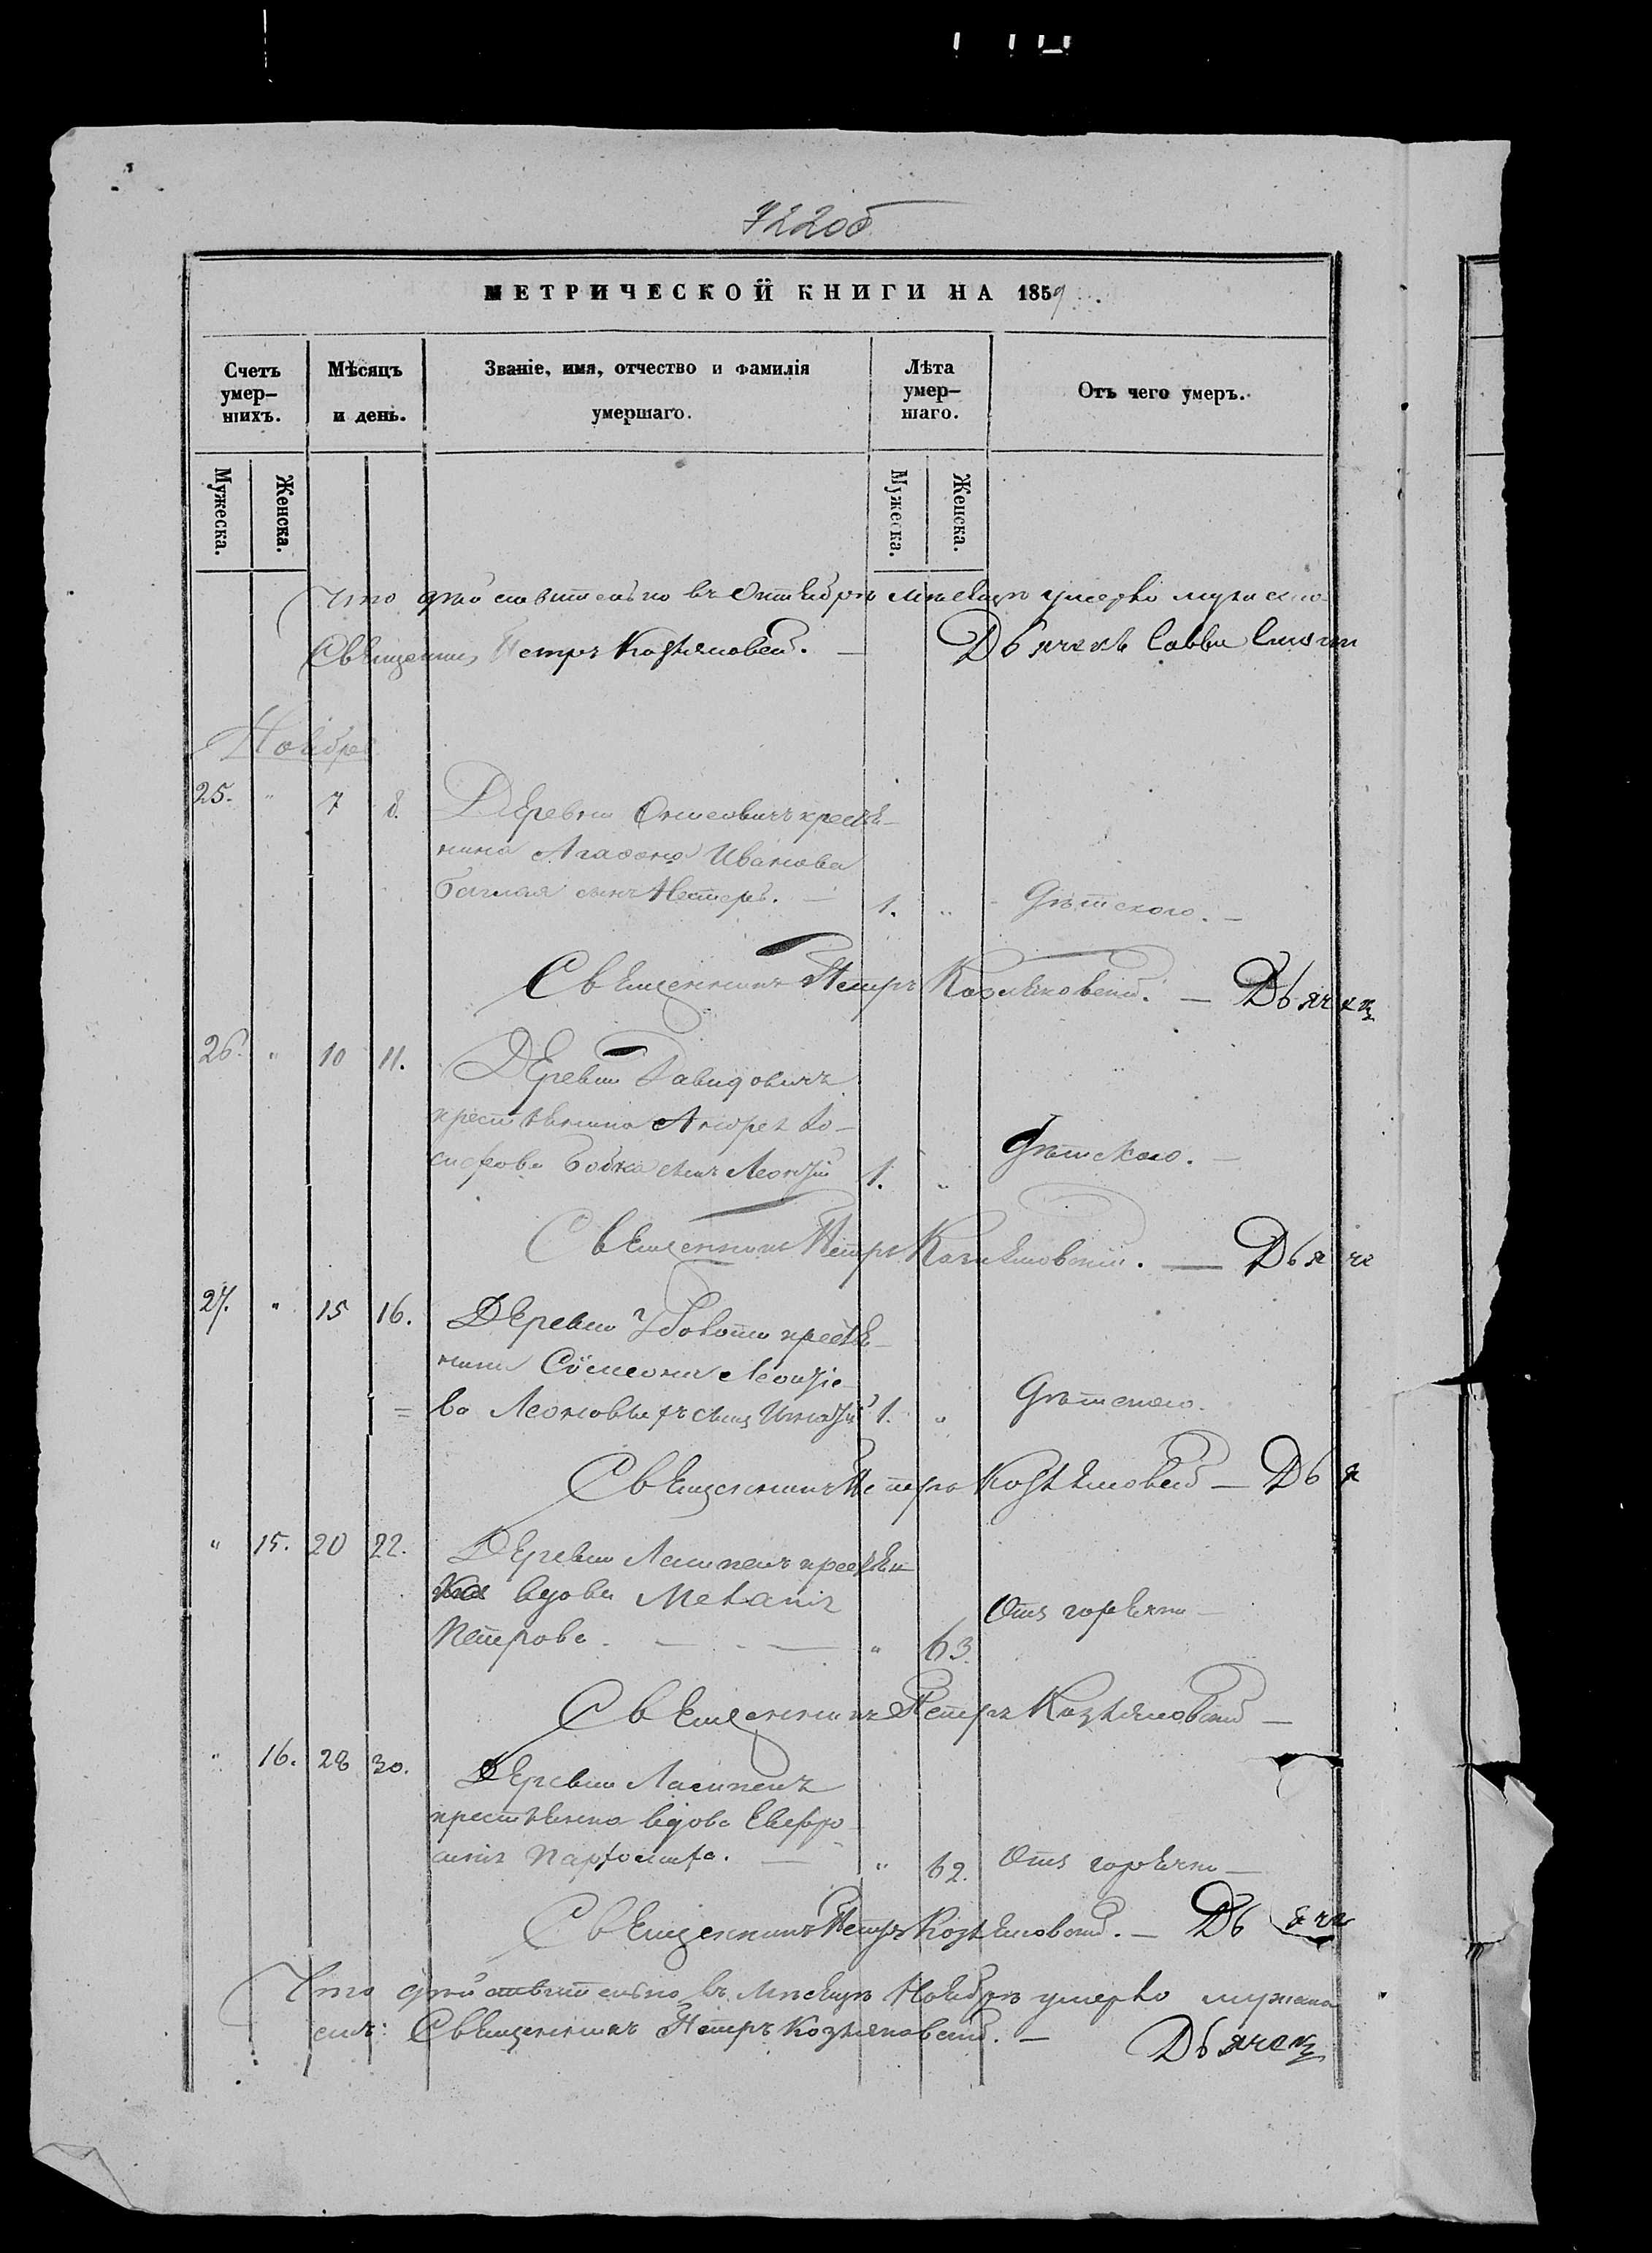 722об
МЕТРИЧЕСКОЙ КНИГИ НА 1859
Счетъ умер–шихъ.
Мѣсяцъ и день.
Званіе, имя, отчество и фамилія умершаго.
Лѣта умер–шаго.
Отъ чего умеръ.
Мужеска.
Женска.
Мужеска.
Женска.
Что дѣйствительно въ Октябрѣ мѣсяцѣ умерло мужеска
Священникъ Петръ Козляковскій. — Дьячекъ Савва
Ноябрь
25. " 7 8. Деревни крестья–
нина Агафона Иванова
сынъ Несторъ. — 1. " Дѣтскою. —
Священникъ Петръ Козляковскій. — Дьячекъ
26. " 10 11. Деревни Давидовичъ
крестьянина Андрея Іо–
сифова Бобка сынъ Леонтій 1. " Дѣтскою. —
Священникъ Петръ Козляковскій. — Дьяче
27. " 15 16. Деревни Убокоти крестья–
нина Сѵмеона Леонтіе–
ва сынъ Игнатій 1. " Дѣтскою.
Священникъ Петръ Козляковскій — Дья
" 15. 20 22. Деревни крестьян
ка вдова Меланія
Петрова. — " 63. Отъ горячки —
Священникъ Петръ Козляковскій —
" 16. 28 30. Деревни
крестьянка вдова Евфро–
синія — " 62. Отъ горячки —
Священникъ Петръ Козляковскій. — Дьяче
Что дѣйствительно въ мѣсяцѣ Ноябрѣ умерло мужеска
Священникъ Петръ Козляковскій. — Дьячекъ